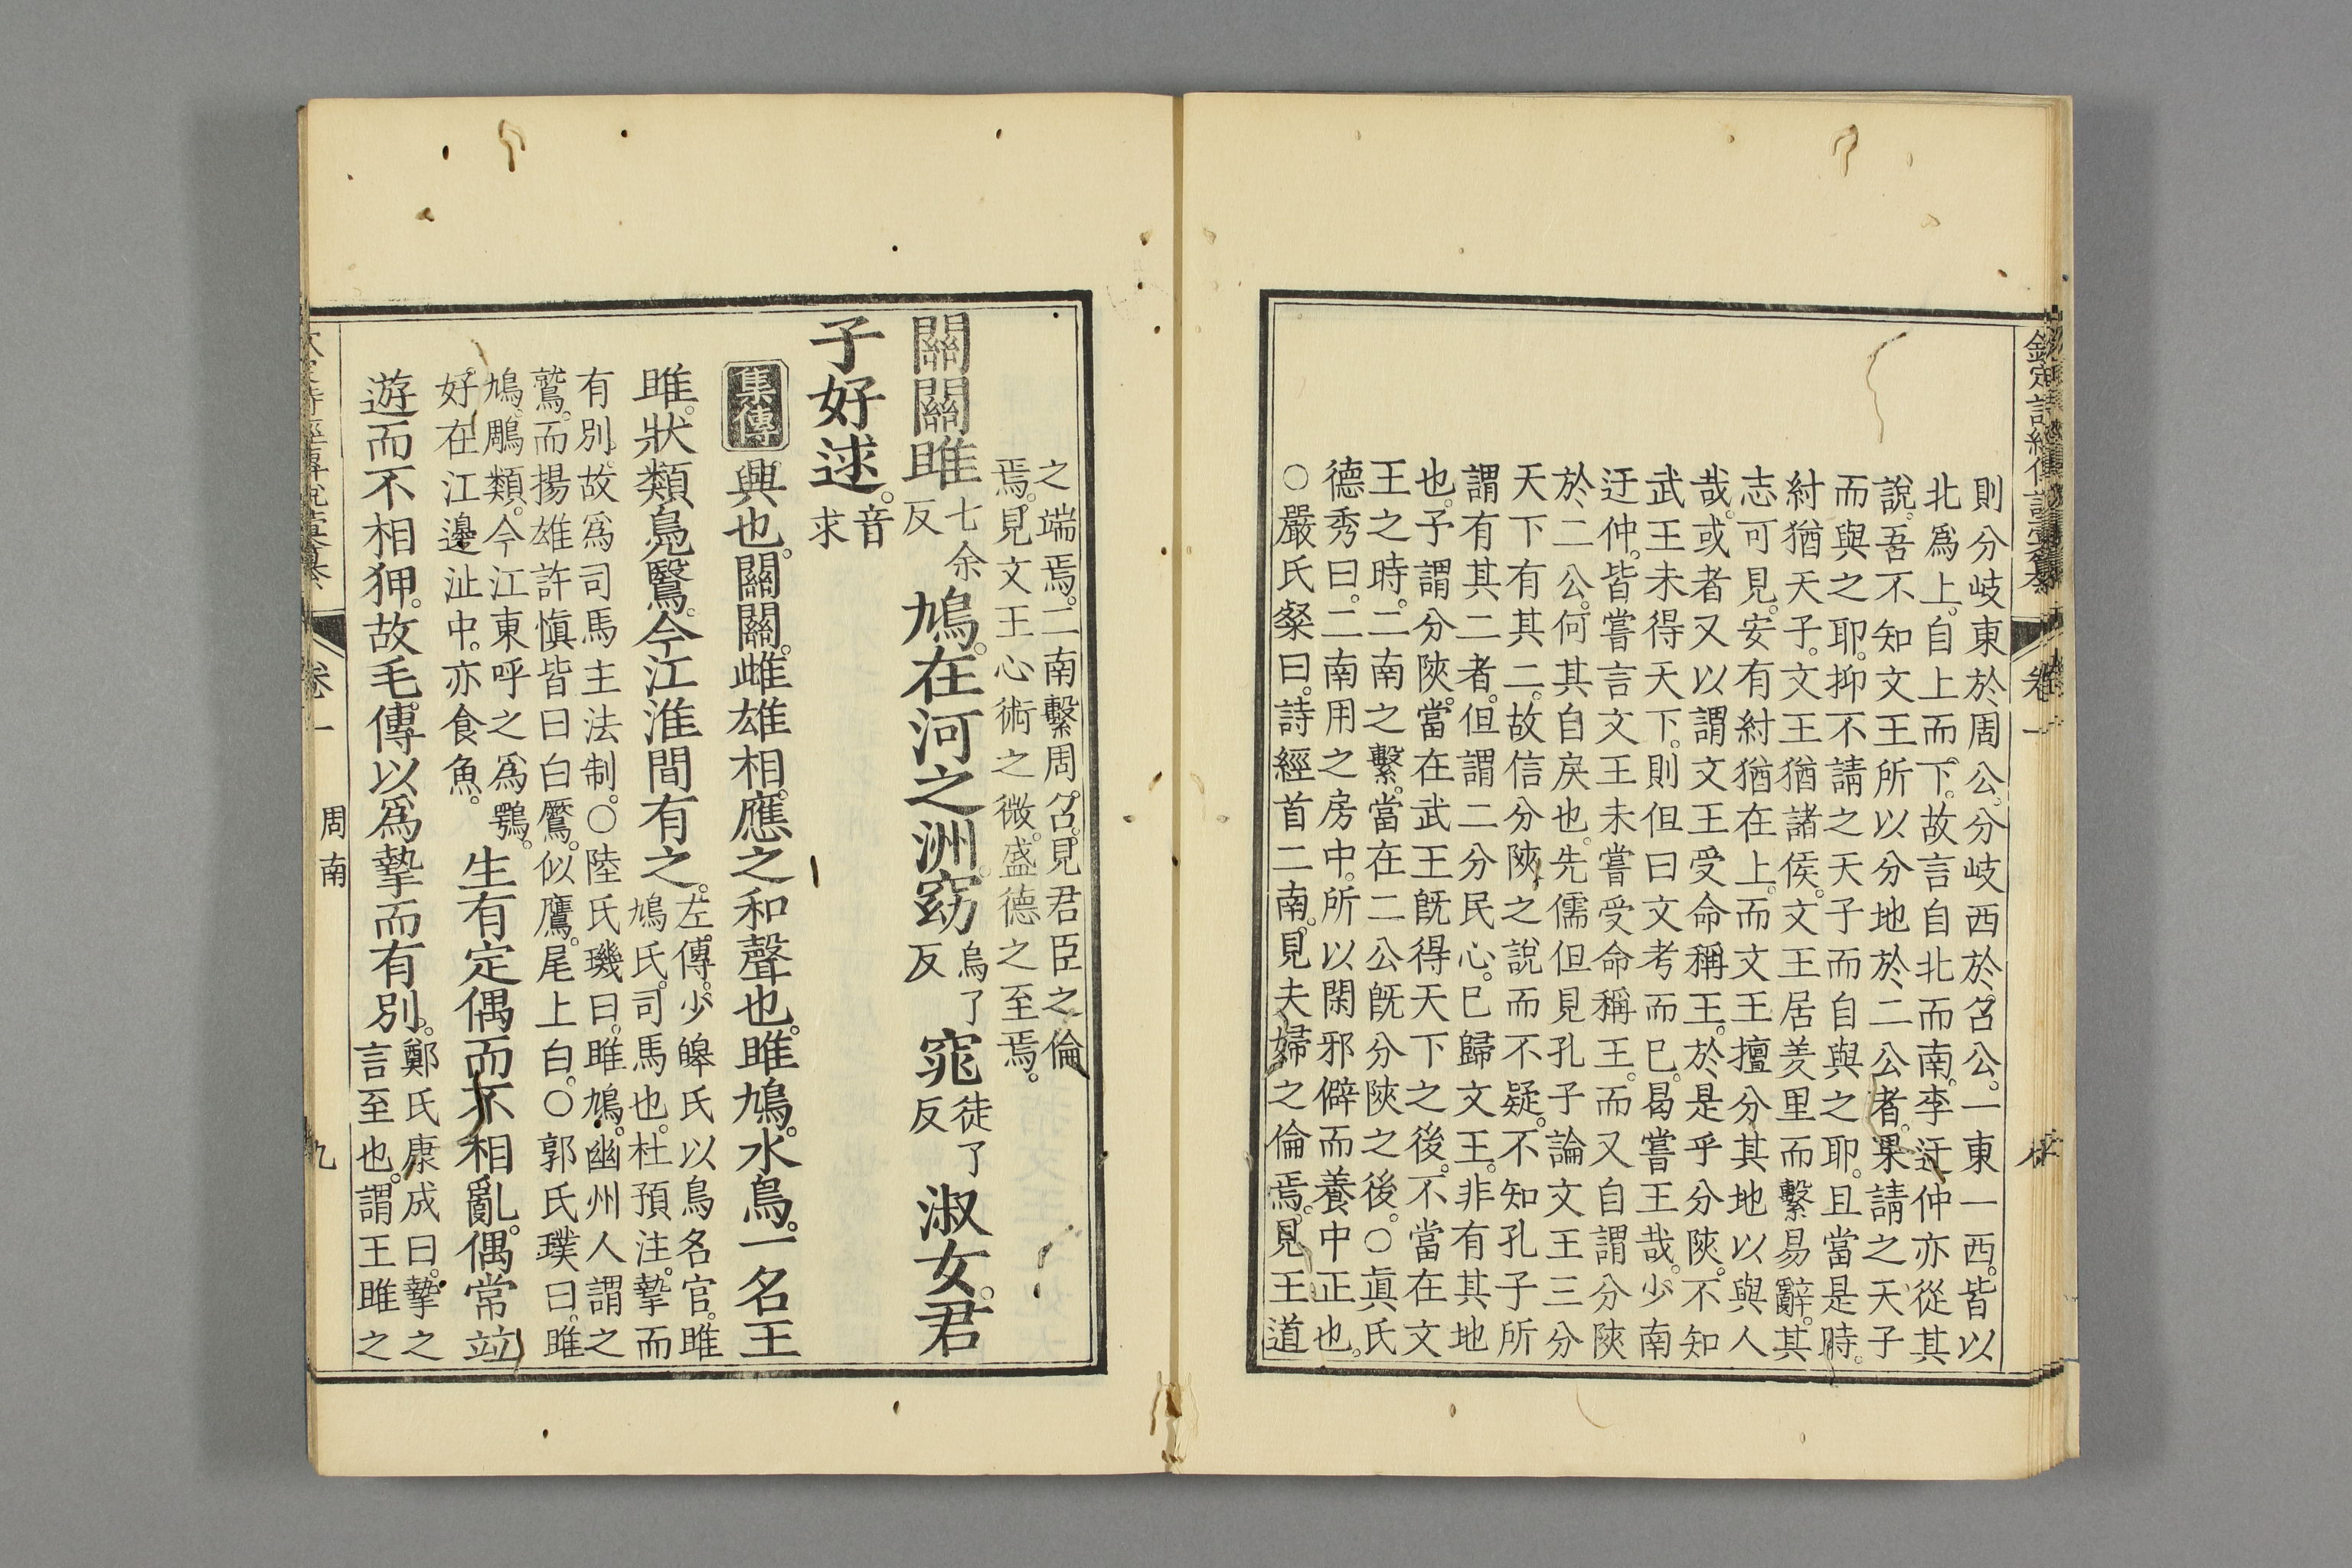 則分岐東於周公。分岐西於召公。一東一西。皆以
北爲上。自上而下。故言自北而南。李迂仲亦從其
說。吾不知文王所以分地於二公者。果請之天子
而與之耶。抑不請之天子而自與之耶。且當是時。
紂猶天子。文王猶諸侯。文王居羑里而繫易辭。其
志可見。安有紂猶在上。而文王擅分其地以與人
哉。或者又以謂文王受命稱王。於是乎分陝。不知
武王未得天下。則但曰文考而已。曷嘗王哉。少南
迂仲。皆嘗言文王未嘗受命稱王。而又自謂分陝
於二公。何其自戾也。先儒但見孔子論文王三分
天下有其二。故信分陝之說而不疑。不知孔子所
謂有其二者。但謂二分民心。已歸文王。非有其地
也。予謂分陝。當在武王旣得天下之後。不當在文
王之時。二南之繫。當在二公旣分陝之後。○眞氏
德秀曰。二南用之房中。所以閑邪僻而養中正也。
○嚴氏粲曰。詩經首二南。見夫婦之倫焉。見王道
之端焉。二南繫周召。見君臣之倫
焉。見文王心術之微。盛德之至焉。
關關雎七余反鳩。在河之洲。窈烏了反窕徒了反淑女。君
子好逑。音求
集傳 興也。關關。雌雄相應之和聲也。雎鳩。水鳥。一名王
雎。狀類鳧鷖。今江淮間有之。左傳。少皞氏以鳥名官。雎
鳩氏。司馬也。杜預注。摯而
有別。故爲司馬主法制。○陸氏璣曰。雎鳩。幽州人謂之
鷲。而揚雄許愼皆曰白鷢。似鷹。尾上白。○郭氏璞曰。雎
鳩。鵰類。今江東呼之爲鶚。
好在江邊沚中。亦食魚。生有定偶而不相亂。偶常竝
遊而不相狎。故毛傳以爲摯而有別。鄭氏康成曰。摯之
言至也。謂王雎之
卷一
周南
九
欽定詩經傳說彙纂
卷一